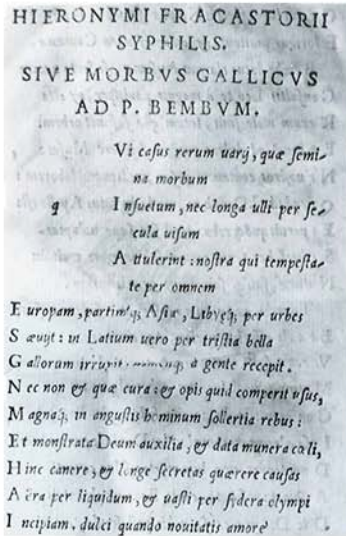 HIERONYMI FRACASTORII
SYPHILIS.
SIVE MORBVS GALLICVS
AD P. BEMBVM.
Vi casus rerum uarij, quæ semi-
na morbum
q I nsuetum, nec longa ulli per se-
cula uisum
A ttulerint: nostra qui tempesta-
te per omnem
E uropam, partimq; Asiæ, Libyęq; per urbes
S æuyt: in Latium uero per tristia bella
G allorum irrupit: nomenq; a gente recepit.
N ec non & quæ cura: & opis quid comperit usus,
M agnaq; in angustis hominum sollertia rebus:
E t monstrata Deum auxilia, & data munera cœli,
H inc canere, & longe secretas quærere causas
A era per liquidum, & uasti per sydera olympi
I ncipiam. dulci quando nouitatis amore